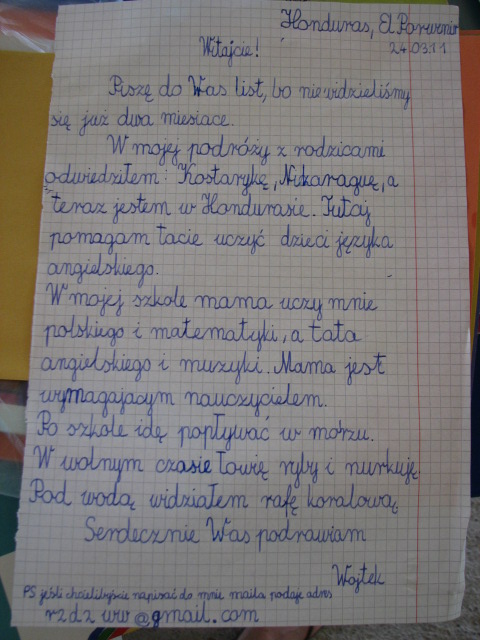 Honduras, El Porvenir
24.03.11
Witajcie!
Piszę do Was list, bo nie widzieliśmy
się już dwa miesiące.
W mojej podróży z rodzicami
odwiedziłem: Kostarykę, Nikaraguę, a
teraz jestem w Hondurasie. Tutaj
pomagam tacie uczyć dzieci języka
angielskiego.
W mojej szkole mama uczy mnie
polskiego i matematyki, a tata
angielskiego i muzyki. Mama jest
wymagającym nauczycielem.
Po szkole idę popływać w morzu.
W wolnym czasie łowię ryby i nurkuję.
Pod wodą widziałem rafę koralową.
Serdecznie Was podrawiam
Wojtek
PS. jeśli chcielibyście napisać do mnie maila podaję adres
rzdz ww@gmail.com